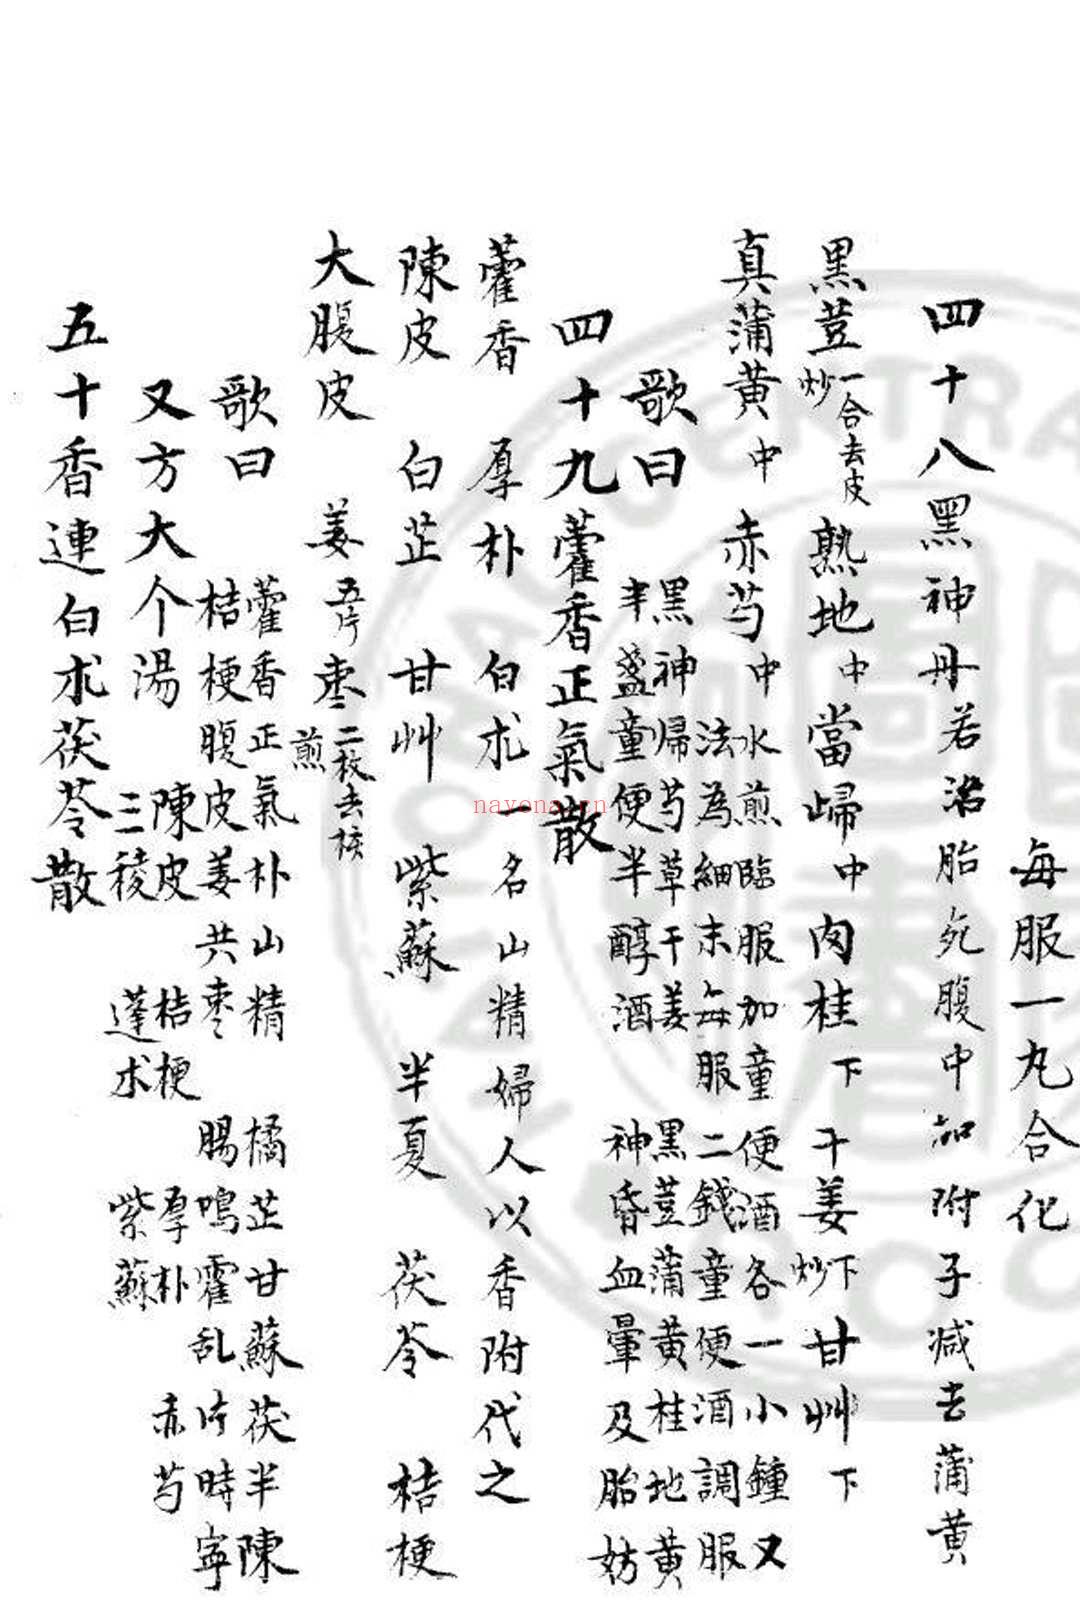 每服一丸合化
四十八黑神丹若治胎死腹中加附子減去蒲黄
黑荳一合去皮炒 熟地中 當歸中 肉桂下 干姜下炒 甘艸下
真蒲黄中 赤芍中 水煎臨服加童便酒各一小鍾又
法為細末每服二錢童便酒調服
歌曰 黑神歸芍草干姜 黑荳蒲黄桂地黄
半盞童便半醇酒 神昏血暈及胎妨
四十九藿香正氣散
藿香 厚朴 白朮一名山精婦人以香附代之
陳皮 白芷 甘艸 紫蘇 半夏 茯苓 桔梗
大腹皮 姜五片 枣二枚去核煎
歌曰 藿香正氣朴山精 橘芷甘蘇茯半陳
桔梗腹皮姜共枣 腸鳴霍乱片時寧
又方大个湯 陳皮 桔梗 厚朴 赤芍
三稜 蓬朮 紫蘇
五十香連白朮茯苓散
nayona.cn